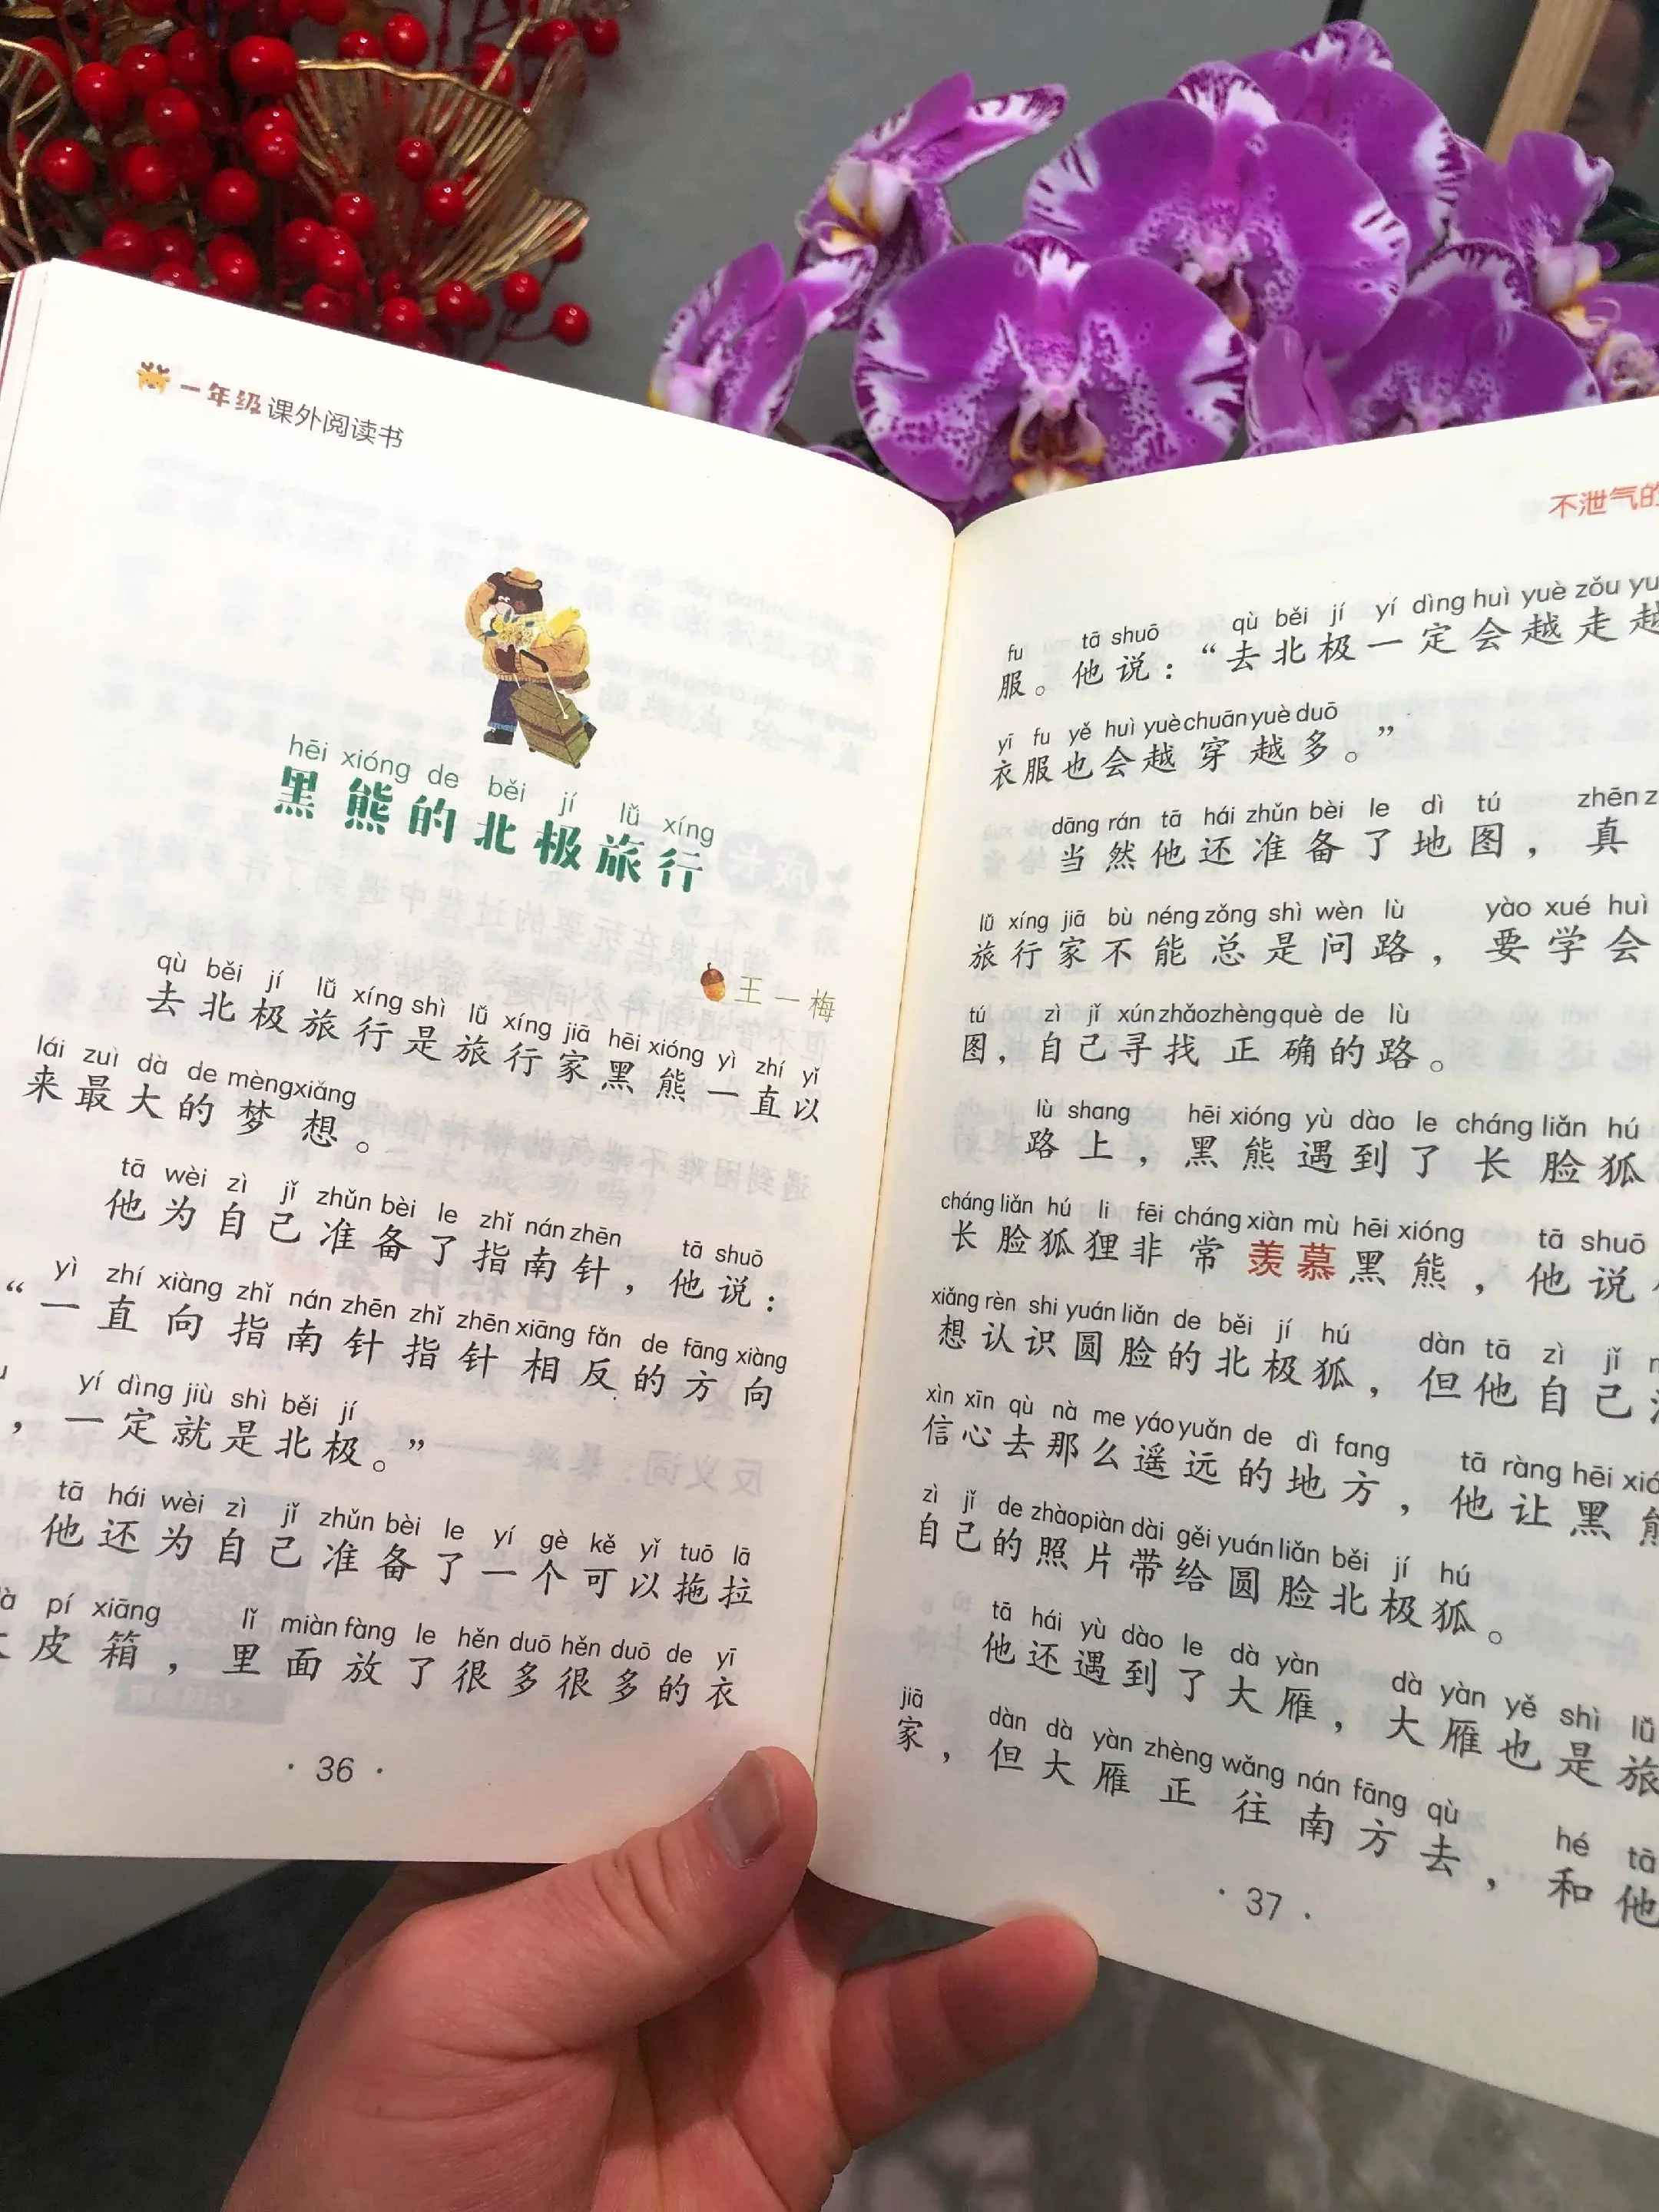 一年级课外阅读书
hēi xióng de běi jí lǚ xíng
黑熊的北极旅行
王一梅
qù běi jí lǚ xíng shì lǚ xíng jiā hēi xióng yì zhí yǐ
去北极旅行是旅行家黑熊一直以
lái zuì dà de mèngxiǎng
来最大的梦想。
tā wèi zì jǐ zhǔn bèi le zhǐ nán zhēn tā shuō
他为自己准备了指南针，他说：
yì zhí xiàng zhǐ nán zhēn zhǐ zhēn xiāng fǎn de fāng xiàng
“一直向指南针指针相反的方向
yí dìng jiù shì běi jí
，一定就是北极。”
tā hái wèi zì jǐ zhǔn bèi le yí gè kě yǐ tuō lā
他还为自己准备了一个可以拖拉
pí xiāng lǐ miàn fàng le hěn duō hěn duō de yī
皮箱，里面放了很多很多的衣
· 36 ·
不泄气的
fu tā shuō qù běi jí yí dìng huì yuè zǒu
服。他说：“去北极一定会越走越
yī fu yě huì yuè chuān yuè duō
衣服也会越穿越多。”
dāng rán tā hái zhǔn bèi le dì tú zhēn
当然他还准备了地图，真
lǚ xíng jiā bù néng zǒng shì wèn lù yào xué huì
旅行家不能总是问路，要学会
tú zì jǐ xún zhǎo zhèng què de lù
图，自己寻找正确的路。
lù shang hēi xióng yù dào le cháng liǎn hú
路上，黑熊遇到了长脸狐
cháng liǎn hú li fēi cháng xiàn mù hēi xióng tā shuō
长脸狐狸非常羡慕黑熊，他说
xiǎng rèn shi yuán liǎn de běi jí hú dàn tā zì jǐ
想认识圆脸的北极狐，但他自己
xìn xīn qù nà me yáo yuǎn de dì fang tā ràng hēi
信心去那么遥远的地方，他让黑熊
zì jǐ de zhàopiàn dài gěi yuán liǎn běi jí hú
自己的照片带给圆脸北极狐。
tā hái yù dào le dà yàn dà yàn yě shì lǚ
他还遇到了大雁，大雁也是旅
jiā dàn dà yàn zhèng wǎng nán fāng qù hé tā
家，但大雁正往南方去，和他
· 37 ·